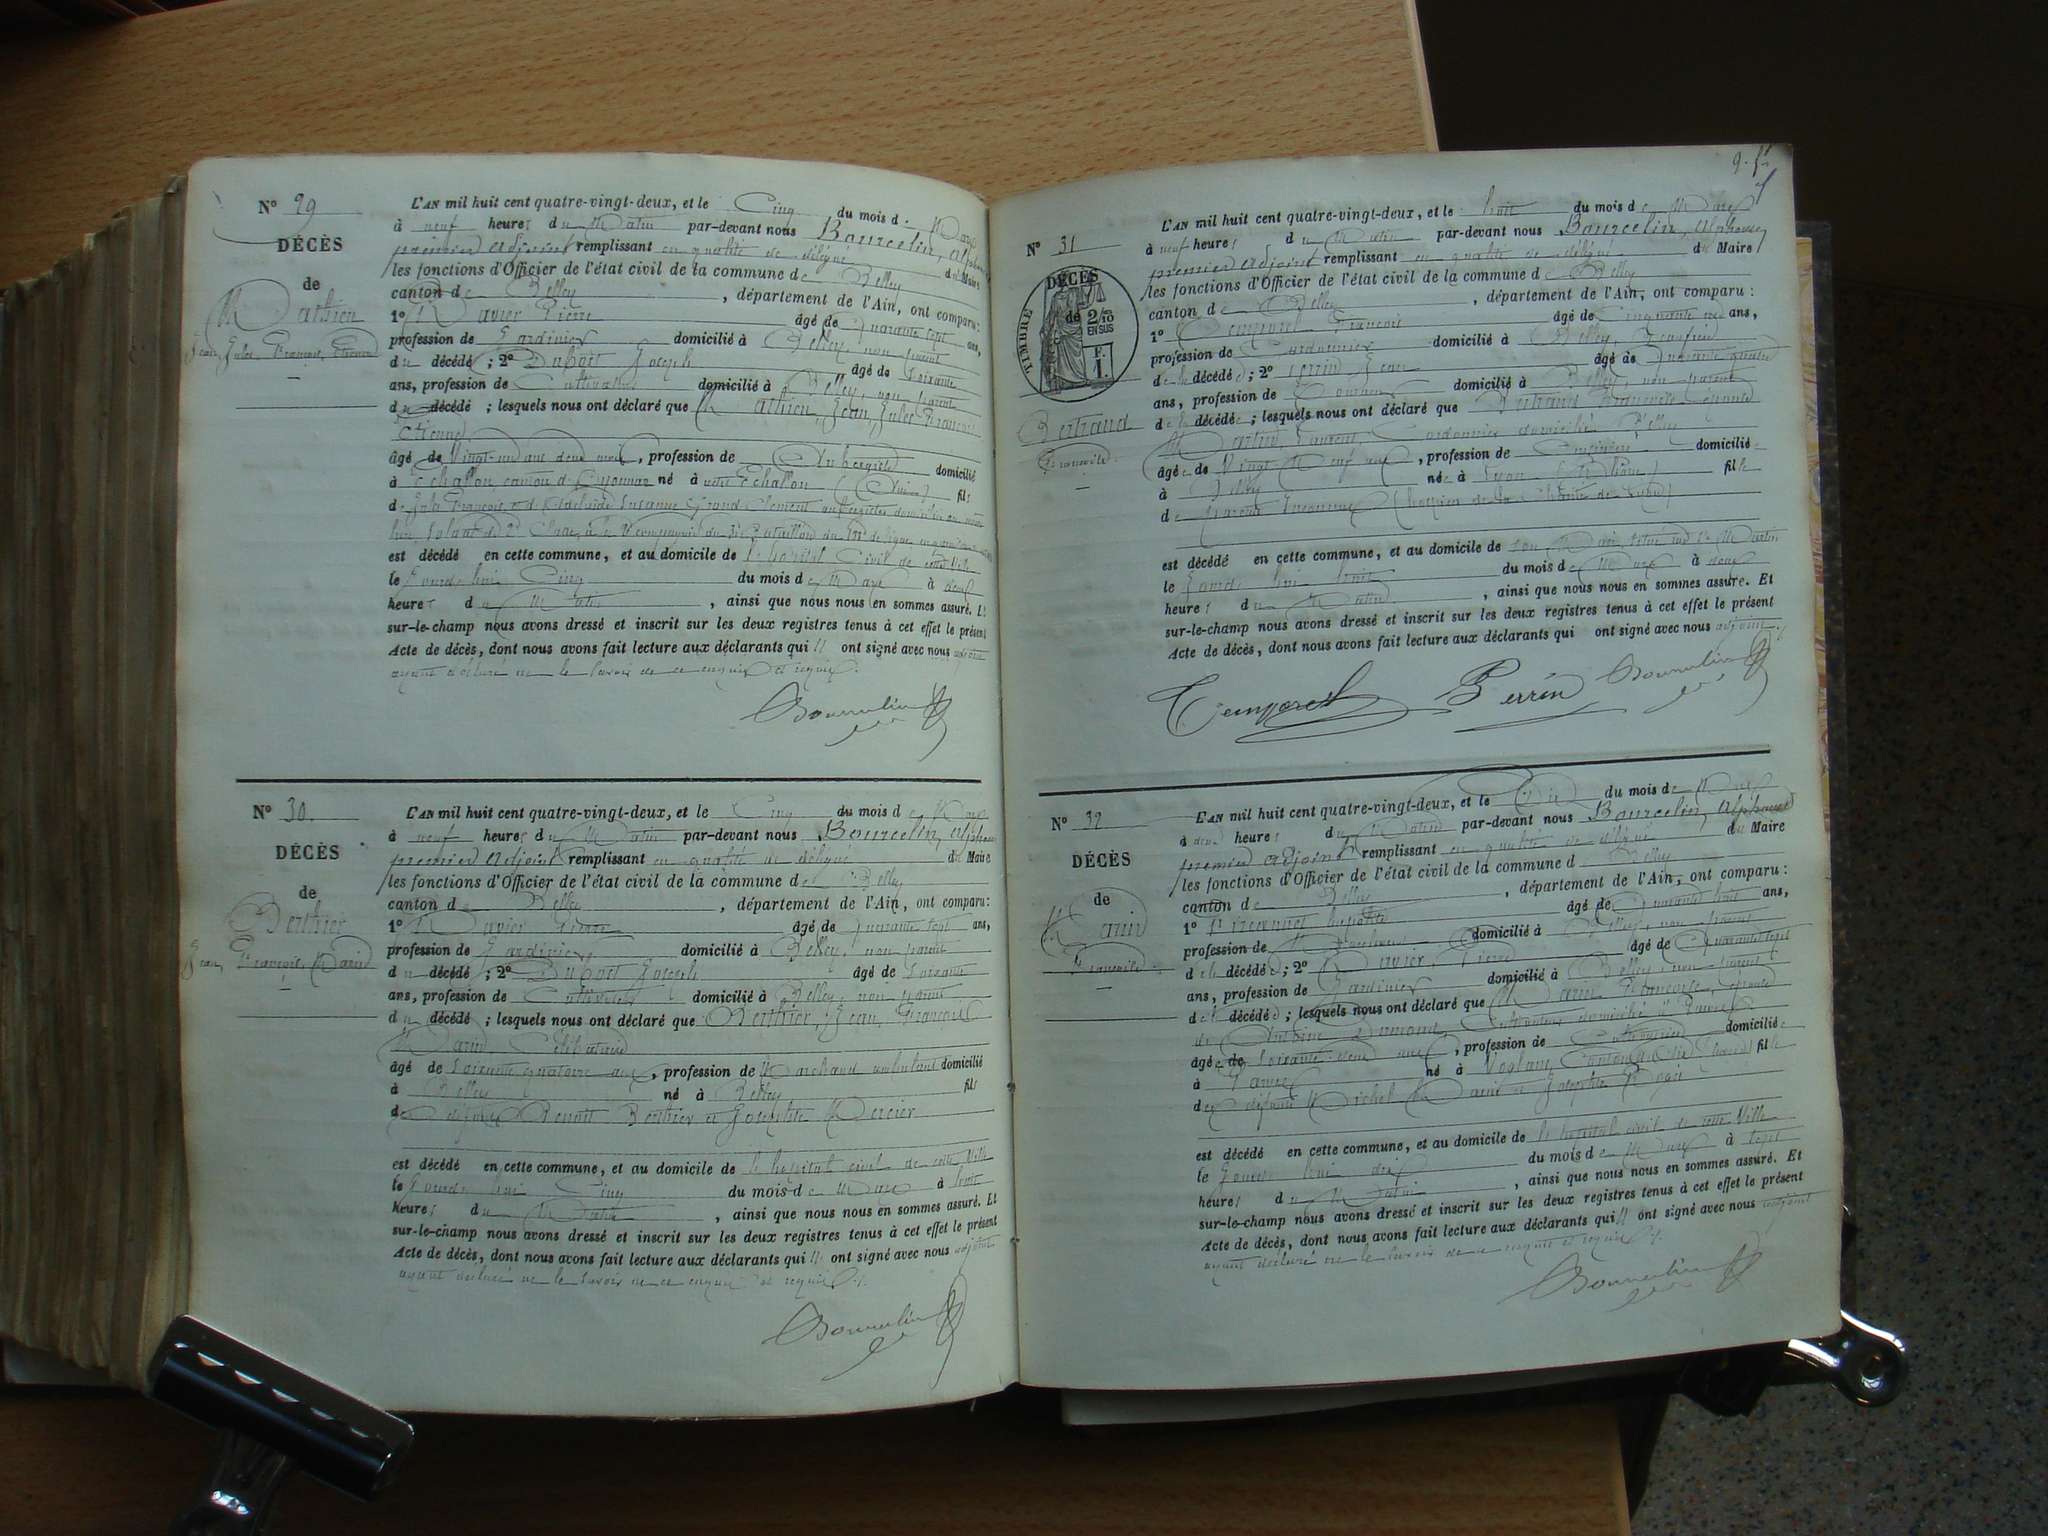 N° 29
DÉCÈS
de
Mathieu
Jean, Jules, François, Etienne
L'AN mil huit cent quatre-vingt-deux, et le Cinq du mois de Mars
à neuf heures du Matin par-devant nous Bourcelin, Alphonse
premier adjoint remplissant en qualité de délégué du Maire
les fonctions d'Officier de l'état civil de la commune de Belley
canton de Belley, département de l'Ain, ont comparu:
1° Davier Pierre âgé de quarante sept ans,
profession de Jardinier domicilié à Belley, non parent
du décédé; 2° Joseph âgé de soixante
ans, profession de Cultivateur domicilié à Belley, non parent
du décédé; lesquels nous ont déclaré que Mathieu, Jean, Jules François
Etienne,
âgé de vingt-un ans deux mois, profession de Aubergiste domicilié
à Echallon, canton d'Oyonnax né à Echallon (Ain) fils
de Jules François, et d'Adélaïde Suzanne Grand Clément aubergistes
soldat de 2e Classe à la Compagnie du Bataillon de ligne
est décédé en cette commune, et au domicile de l'hôpital Civil de cette Ville
le Jourd'hui Cinq du mois de Mars à deux
heures du Matin, ainsi que nous nous en sommes assuré. Et
sur-le-champ nous avons dressé et inscrit sur les deux registres tenus à cet effet le présent
Acte de décès, dont nous avons fait lecture aux déclarants qui ont signé avec nous adjoint
ayant déclaré ne le savoir de ce enquis et requis.
Bourcelin
N° 30.
DÉCÈS
de
Berthier
Jean, François, Marie
L'AN mil huit cent quatre-vingt-deux, et le Cinq du mois de Mars
à neuf heures du Matin par-devant nous Bourcelin, Alphonse
premier adjoint remplissant en qualité de délégué du Maire
les fonctions d'Officier de l'état civil de la commune de Belley
canton de Belley, département de l'Ain, ont comparu:
1° Davier Pierre âgé de quarante sept ans,
profession de Jardinier domicilié à Belley, non parent
du décédé; 2° Joseph âgé de soixante
ans, profession de Cultivateur domicilié à Belley, non parent
du décédé; lesquels nous ont déclaré que Berthier, Jean, François
Marie, Célibataire
âgé de soixante quatorze ans, profession de Marchand ambulant domicilié
à Belley né à Belley fils
de défunts Benoît Berthier et Josephte Mercier
est décédé en cette commune, et au domicile de l'hôpital civil de cette Ville
le Jourd'hui Cinq du mois de Mars à huit
heures du Matin, ainsi que nous nous en sommes assuré. Et
sur-le-champ nous avons dressé et inscrit sur les deux registres tenus à cet effet le présent
Acte de décès, dont nous avons fait lecture aux déclarants qui ont signé avec nous adjoint
ayant déclaré ne le savoir de ce enquis et requis
Bourcelin
9. f.
N° 31
DÉCÈS
de
TIMBRE
2/10
EN SUS
F.
1.
Bertrand
Françoise
L'AN mil huit cent quatre-vingt-deux, et le huit du mois de Mars
à neuf heures du Matin par-devant nous Bourcelin, Alphonse
premier adjoint remplissant en qualité de délégué du Maire
les fonctions d'Officier de l'état civil de la commune de Belley
canton de Belley, département de l'Ain, ont comparu:
1° Temporel François âgé de Cinquante ans,
profession de Cordonnier domicilié à Belley,
de la décédée; 2° Perrin Jean âgé de quarante quatre
ans, profession de domicilié à Belley, non parent
de la décédée; lesquels nous ont déclaré que Bertrand Françoise épouse
Martin Laurent, Cordonnier domicilié à Belley
âgée de vingt neuf ans, profession de domiciliée
à Belley née à Lyon (Rhône) fille
de parents inconnus (hospice de la Charité de Lyon)
est décédé en cette commune, et au domicile de son Mari, situé rue St Martin
le Jourd'hui huit du mois de Mars à deux
heures du Matin, ainsi que nous nous en sommes assuré. Et
sur-le-champ nous avons dressé et inscrit sur les deux registres tenus à cet effet le présent
Acte de décès, dont nous avons fait lecture aux déclarants qui ont signé avec nous adjoint
Temporel Perrin Bourcelin
N° 32
DÉCÈS
de
Marin
Françoise
L'AN mil huit cent quatre-vingt-deux, et le Dix du mois de Mars
à heures du Matin par-devant nous Bourcelin, Alphonse
premier adjoint remplissant en qualité de délégué du Maire
les fonctions d'Officier de l'état civil de la commune de Belley
canton de Belley, département de l'Ain, ont comparu:
1° hippolyte âgé de quarante huit ans,
profession de domicilié à Belley, non parent
de la décédée; 2° Davier Pierre âgé de quarante sept
ans, profession de Jardinier domicilié à Belley, non parent
de la décédée; lesquels nous ont déclaré que Marin Françoise, épouse
de Antoine Cultivateur domicilié à
âgée de soixante deux ans, profession de Cultivatrice domiciliée
à né à Voglans, Canton d'Aix (Savoie) fille
des défunts Michel Marin et Josephte
est décédé en cette commune, et au domicile de l'hôpital civil de cette Ville
le Jourd'hui dix du mois de Mars à sept
heures du Matin, ainsi que nous nous en sommes assuré. Et
sur-le-champ nous avons dressé et inscrit sur les deux registres tenus à cet effet le présent
Acte de décès, dont nous avons fait lecture aux déclarants qui ont signé avec nous adjoint
ayant déclaré ne le savoir de ce enquis et requis
Bourcelin